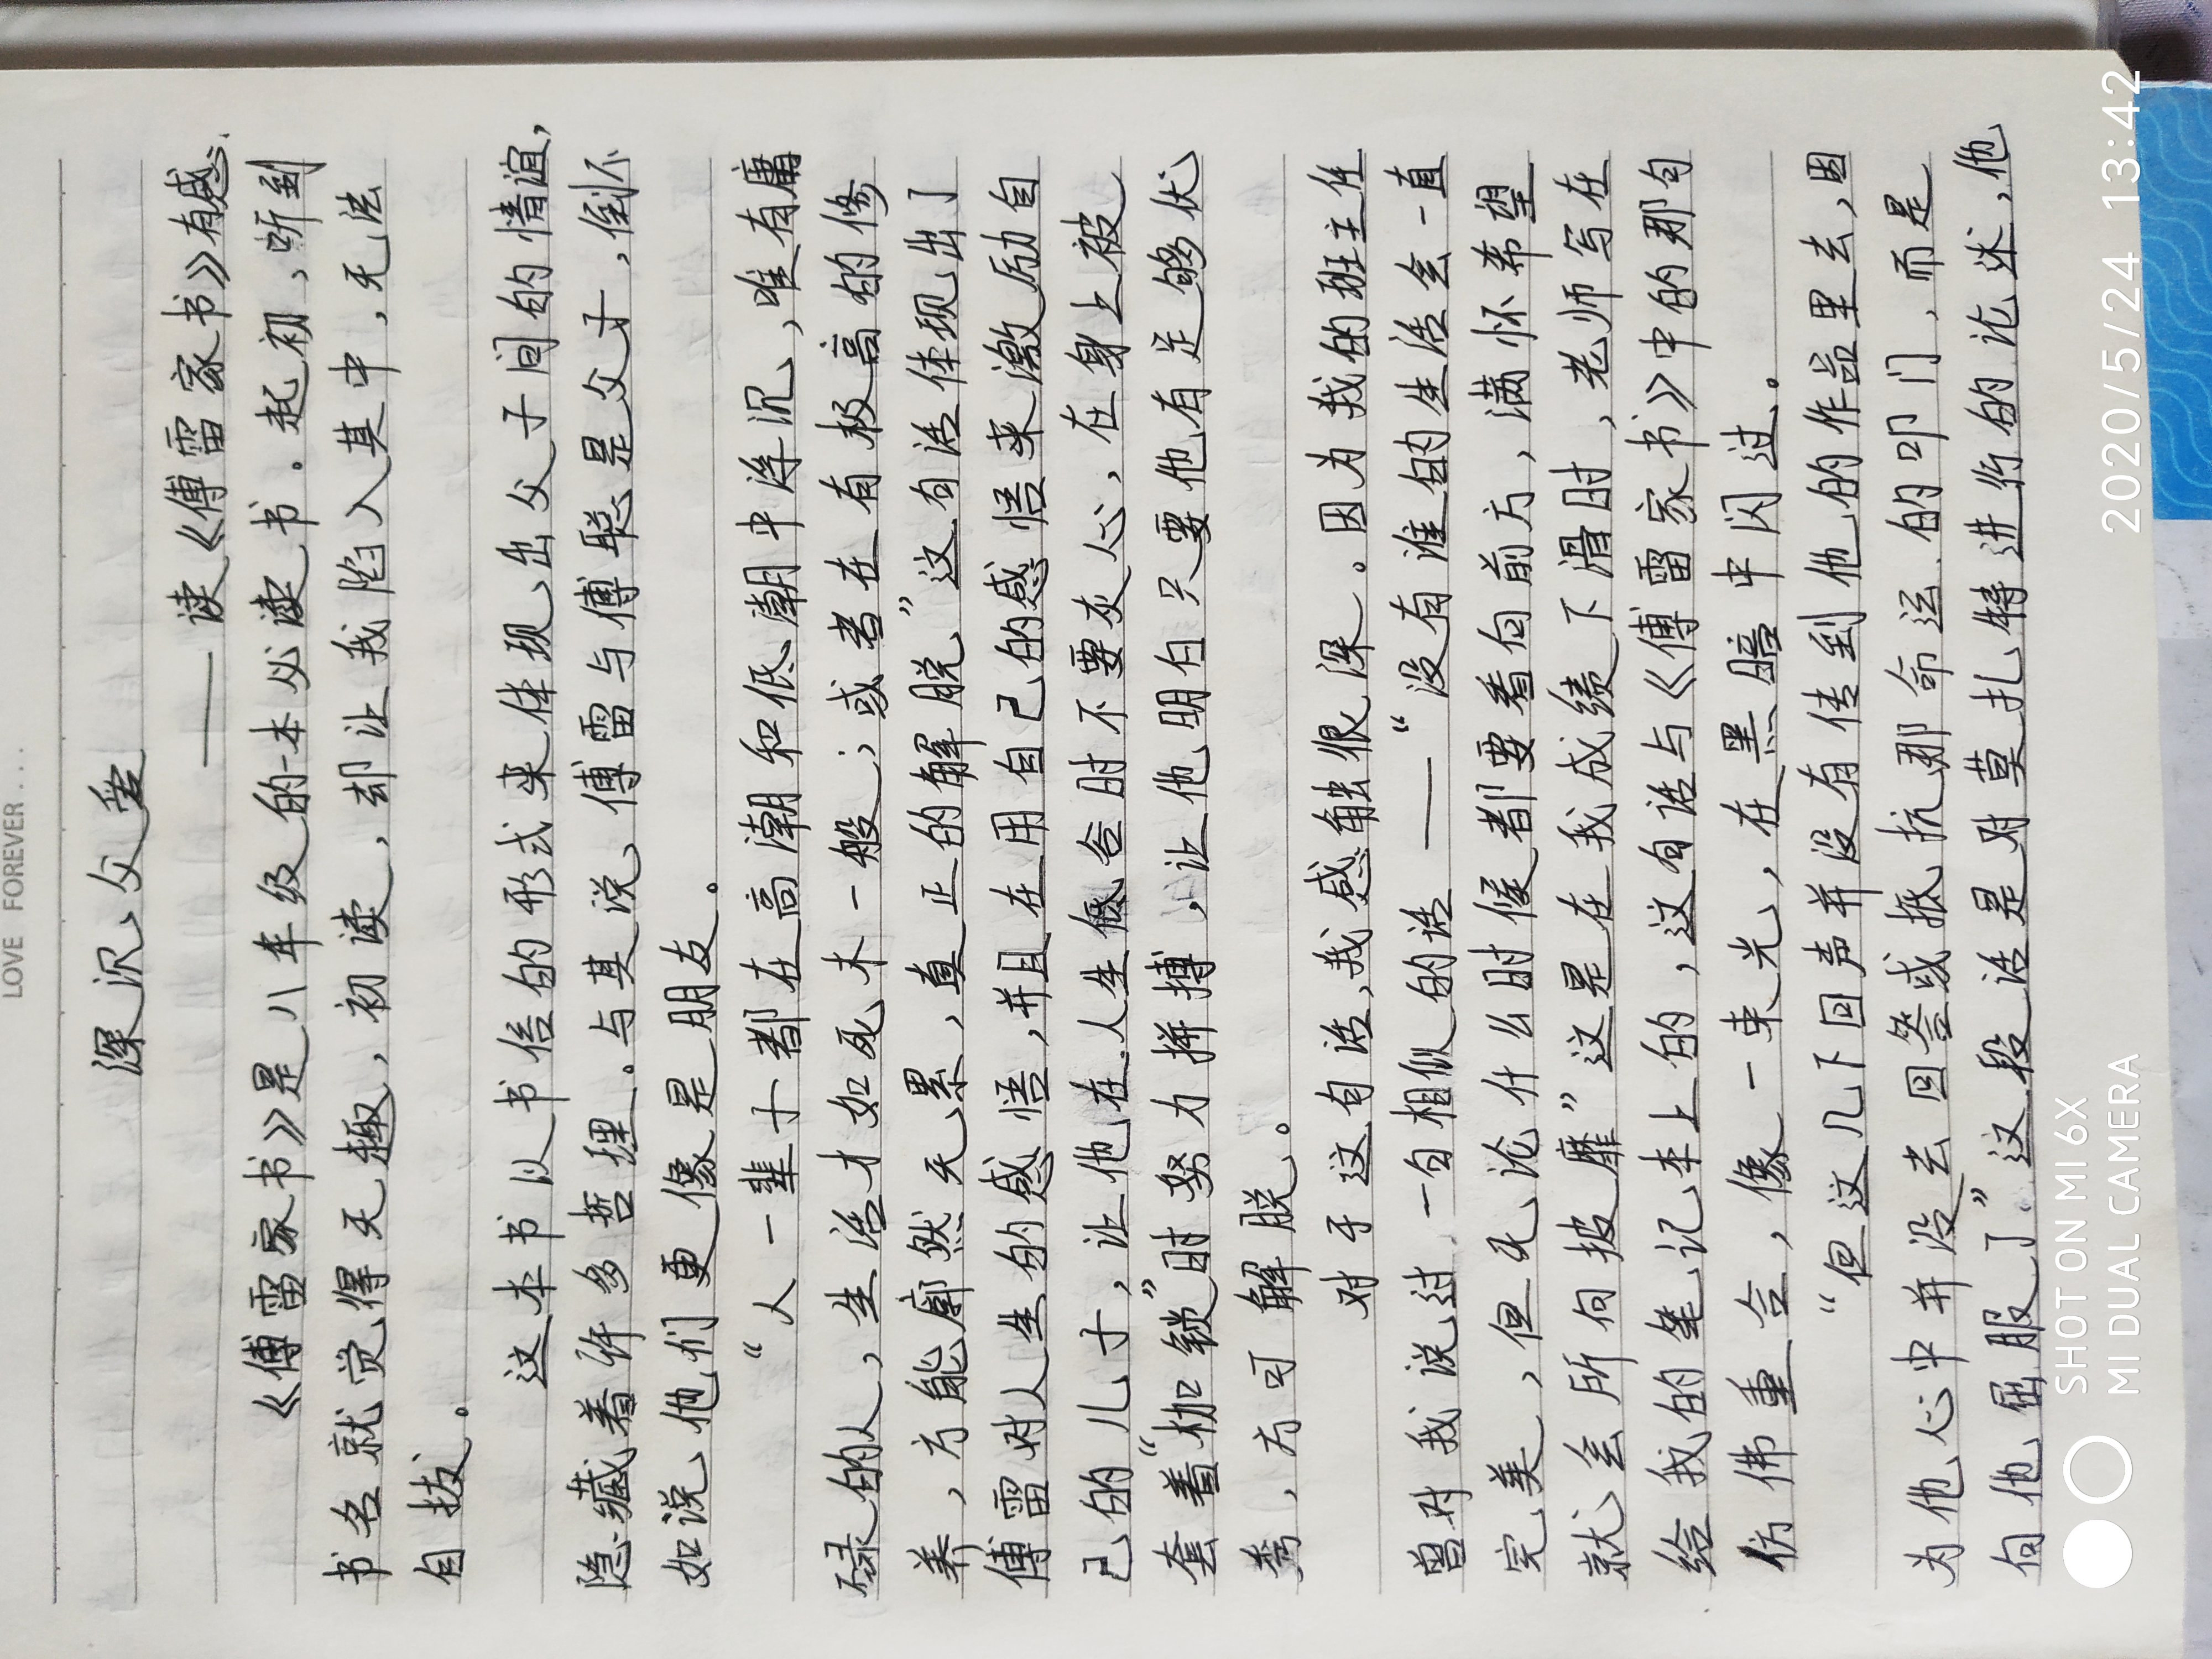 LOVE FOREVER...
深沉父爱
——读《傅雷家书》有感
《傅雷家书》是八年级的一本必读书.起初,听到
书名就觉得无趣,初读,却让我陷入其中,无法
自拔。
这本书以书信的形式来体现出父子间的情谊,
隐藏着许多哲理.与其说傅雷与傅聪是父子,倒不
如说他们更像是朋友。
“人一辈子都在高潮和低潮中浮沉,唯有庸
碌的人,生活才如死木一般;或者在有极高的修
养,方能廓然无累,真正的解脱”这句话体现出了
傅雷对人生的感悟,并且在用自己的感悟来激励自
己的儿子,让他在人生低谷时不要灰心,在身上被
套着“枷锁”时努力拼搏,让他明白只要他有足够伏
骜,方可解脱。
对于这句话,我感触很深。因为我的班主任
曾对我说过一句相似的话——“没有谁的生活会一直
完美,但无论什么时候都要看向前方,满怀希望
就会所向披靡”这是在我成绩下滑时,老师写在
给我的笔记本上的,这句话与《傅雷家书》中的那句
仿佛重合,像一束光,在黑暗中闪过。
“但这几下回声并没有传到他的作品里去,因
为他心中并没去回答或抵抗那命运的叩门,而是
向他屈服了”这段话是对莫扎特进行的论述,他
SHOT ON MI 6X
MI DUAL CAMERA
2020/5/24 13:42